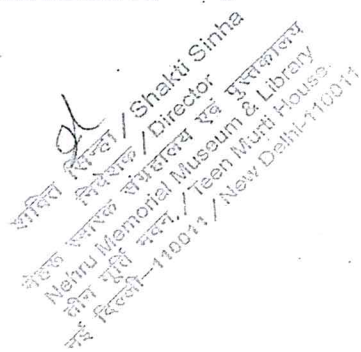 शक्ति सिन्हा / Shakti Sinha
निदेशक / Director
नेहरू स्मारक संग्रहालय एवं पुस्तकालय
Nehru Memorial Museum & Library
तीन मूर्ति भवन, / Teen Murti House,
नई दिल्ली–110011 / New Delhi-110011